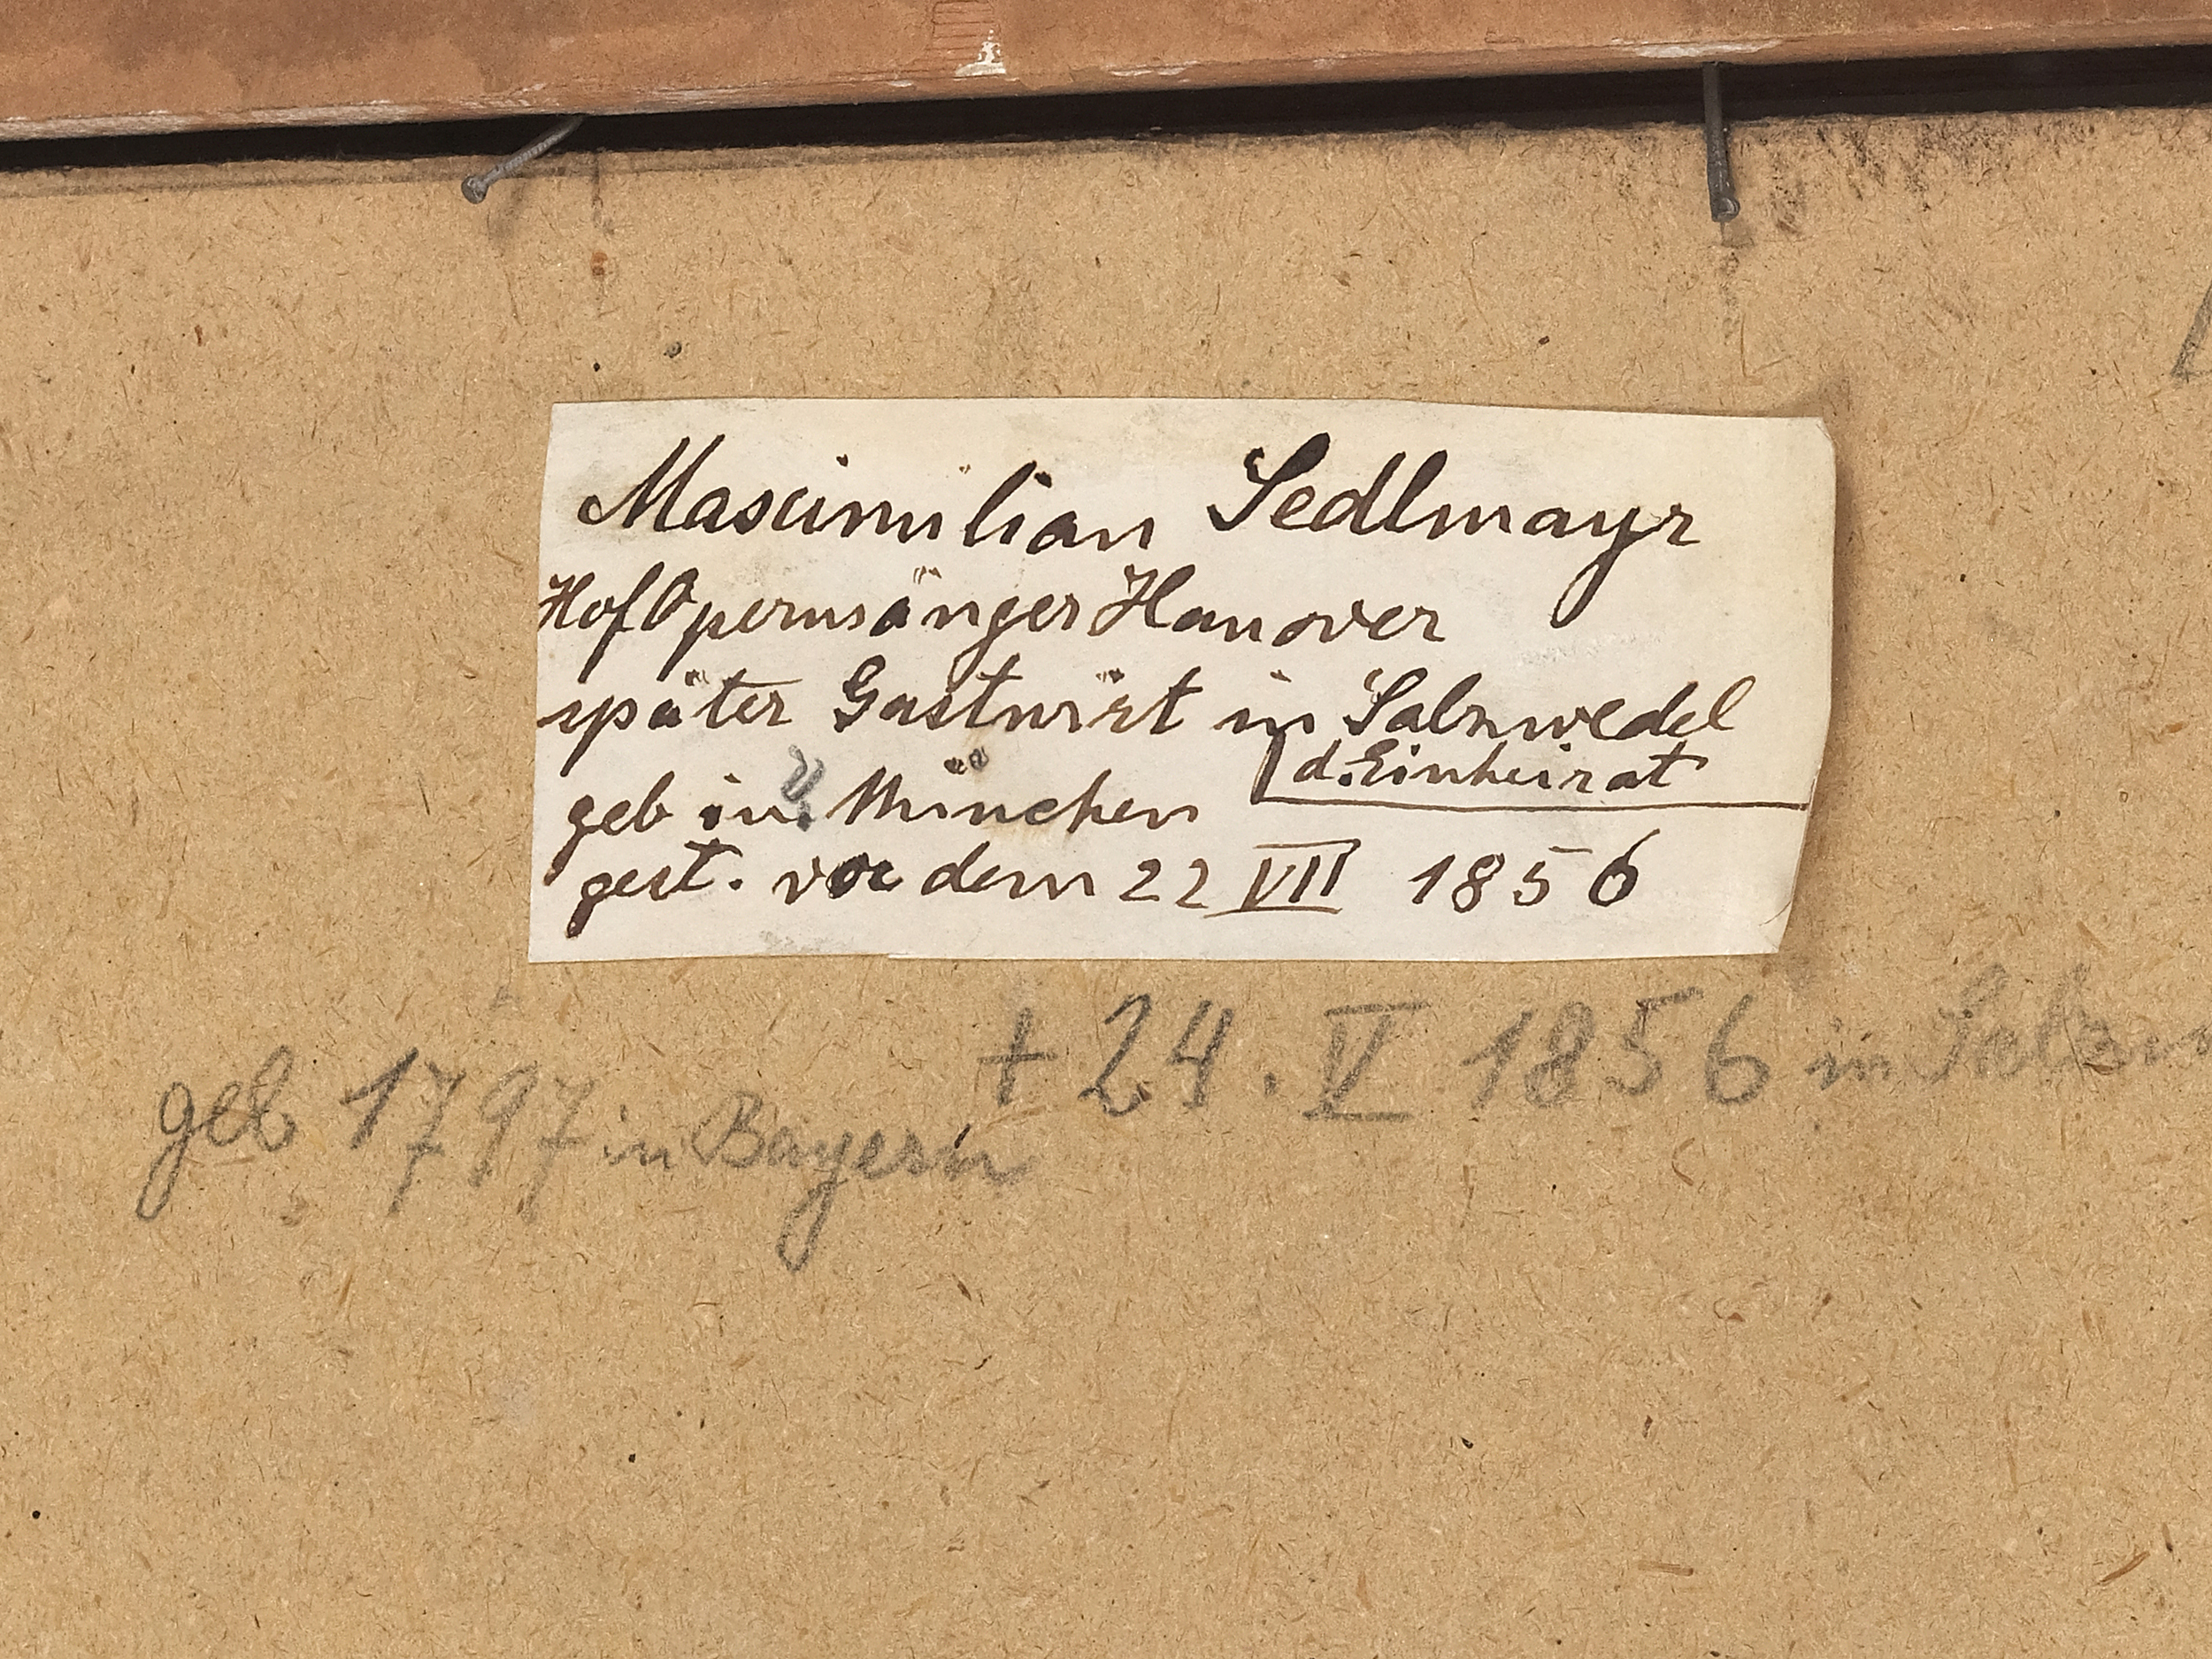 Maximilian Sedlmayr
HofOpernsänger Hanover
später Gastwirt in Salzwedel
d. Einheirat
geb in ? München
gest. vor dem 22 VII 1856
+ 24. V 1856 in Salzw
geb 1797 in Bayern